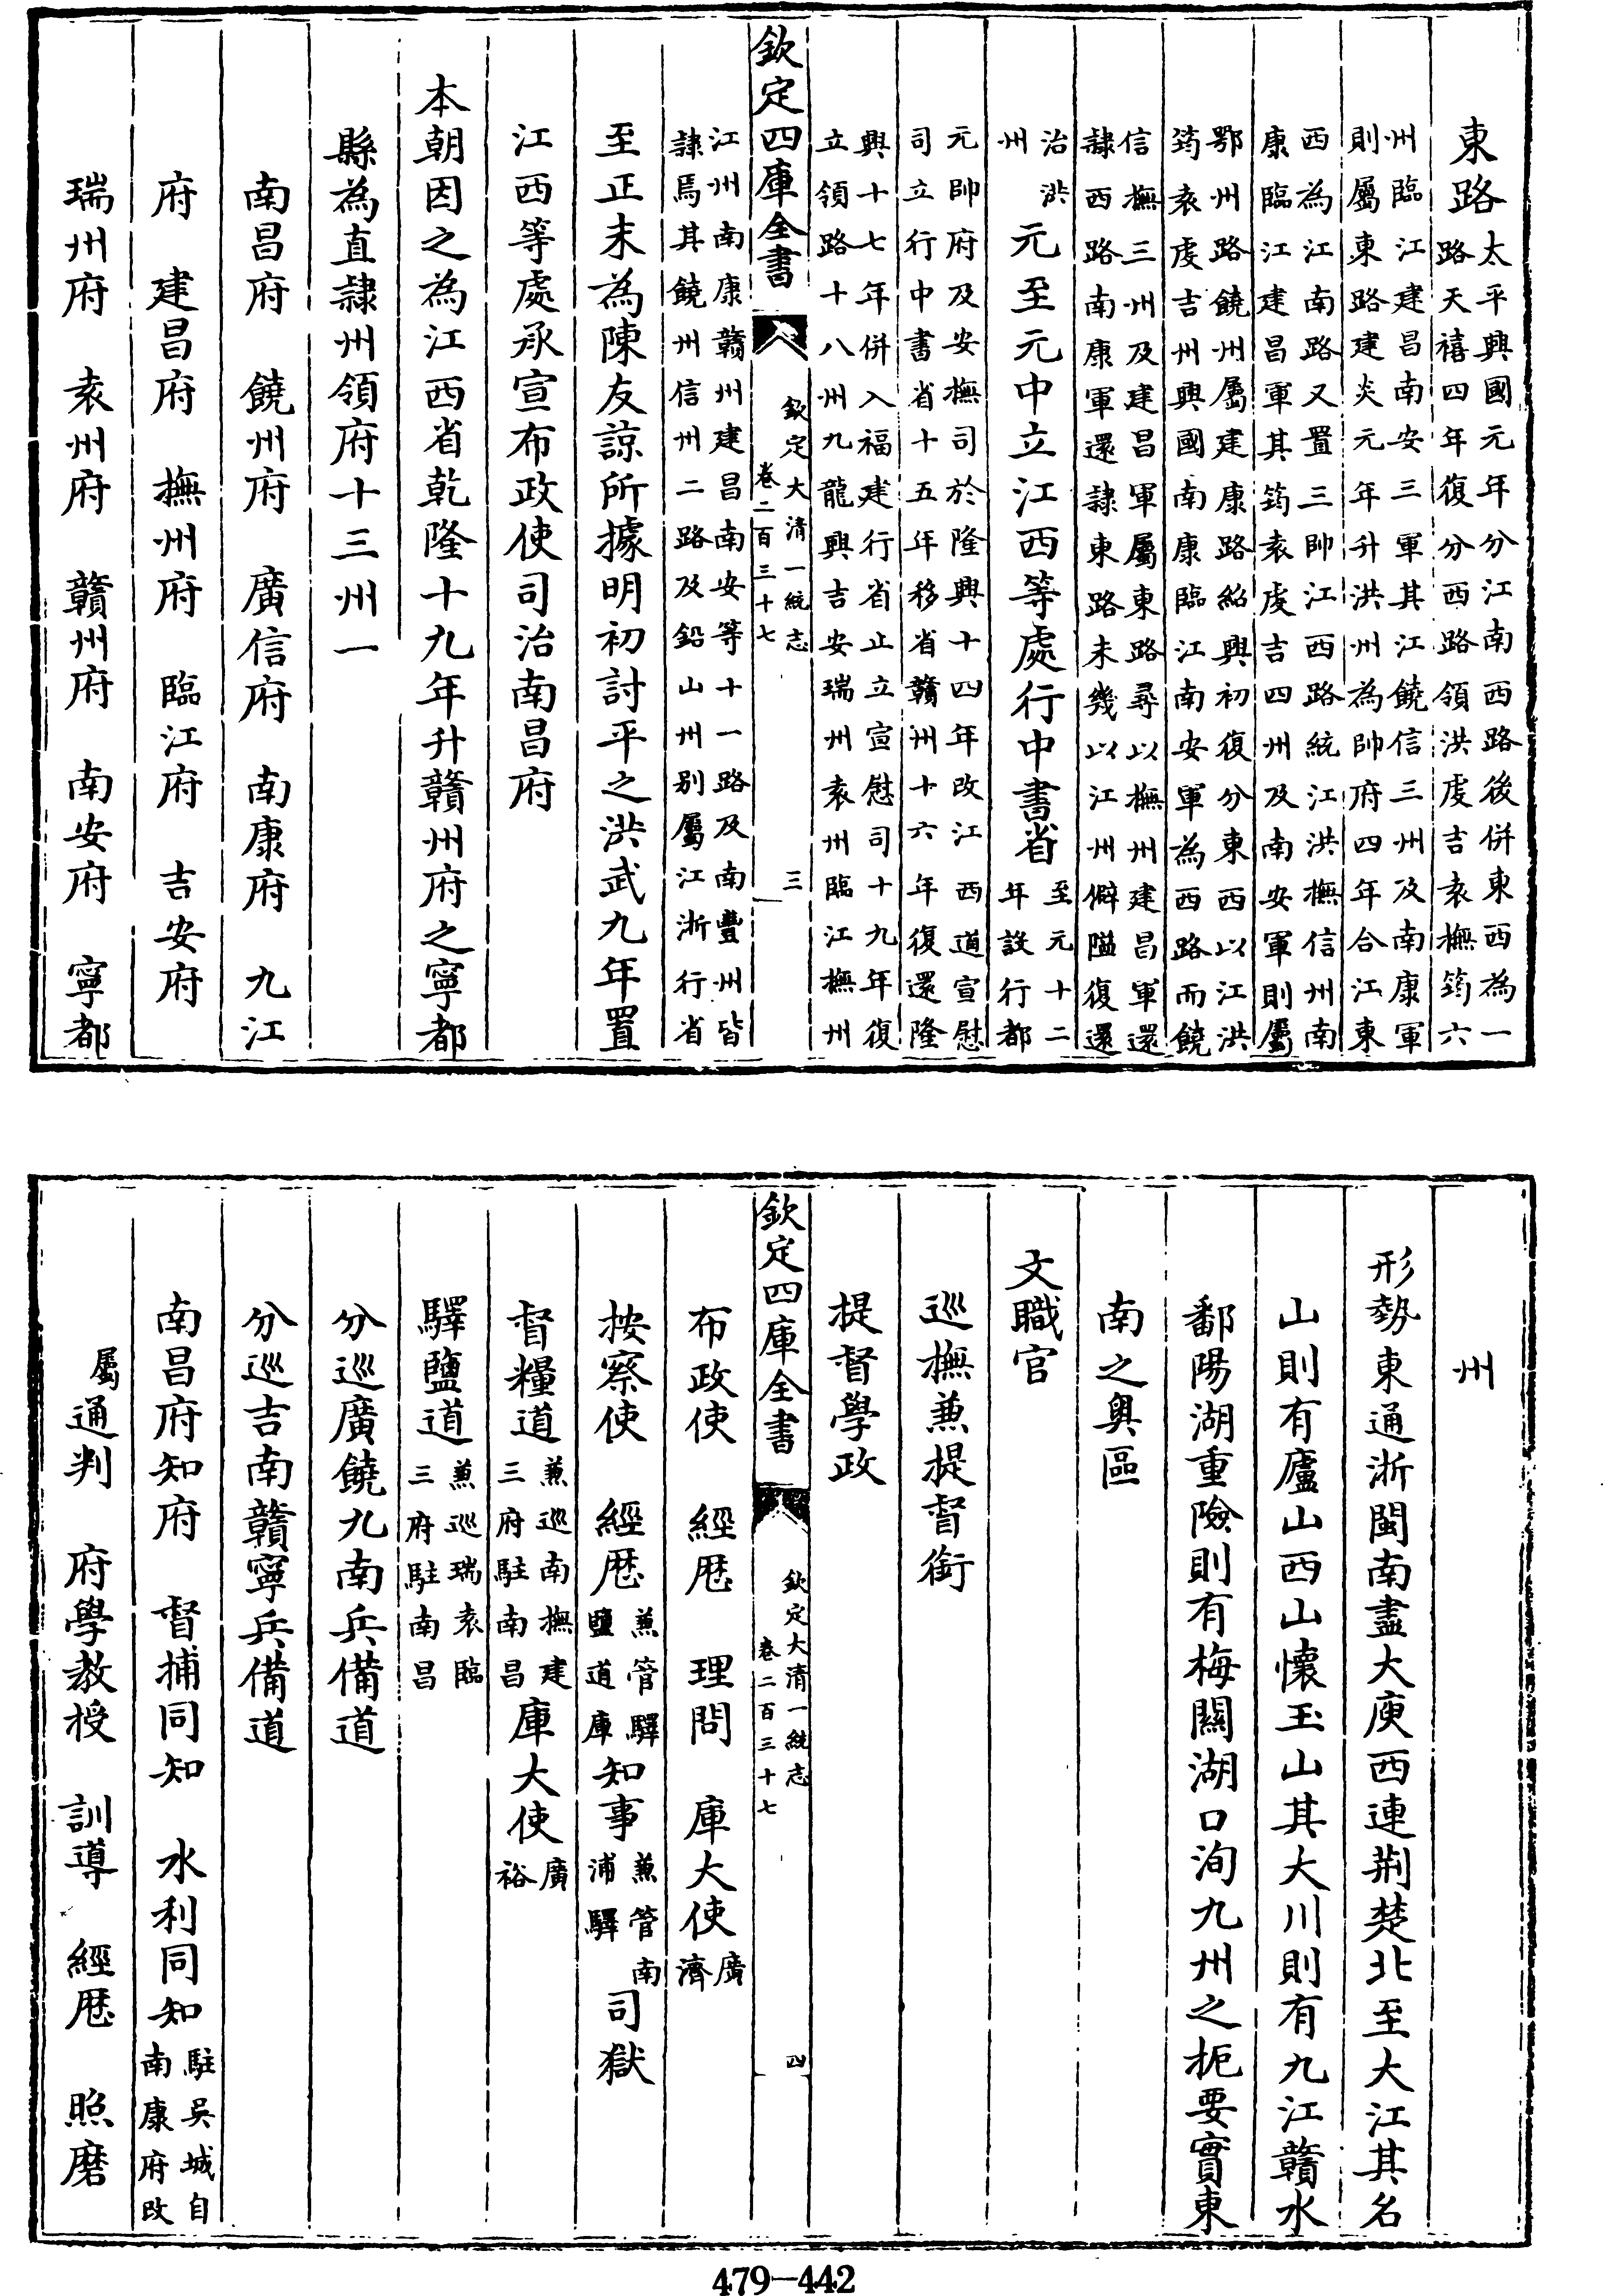 東路太平興國元年分江南西路後併東西為一
路天禧四年復分西路領洪虔吉袁撫筠六
州臨江建昌南安三軍其江饒信三州及南康軍
則屬東路建炎元年升洪州為帥府四年合江東
西為江南路又置三帥江西路統江洪撫信州南
康臨江建昌軍其筠袁虔吉四州及南安軍則屬
鄂州路饒州屬建康路紹興初復分東西以江洪
筠袁虔吉州興國南康臨江南安軍為西路而饒
信撫三州及建昌軍屬東路尋以撫州建昌軍還
隷西路南康軍還隷東路未幾以江州僻隘復還
治洪
州
元至元中立江西等處行中書省至元十二
年設行都
元帥府及安撫司於隆興十四年改江西道宣慰
司立行中書省十五年移省贑州十六年復還隆
興十七年併入福建行省止立宣慰司十九年復
立領路十八州九龍興吉安瑞州袁州臨江撫州
欽定四庫全書
欽定大清一統志
卷二百三十七
三
江州南康贑州建昌南安等十一路及南豐州皆
隷焉其饒州信州二路及鉛山州别屬江浙行省
至正末為陳友諒所據明初討平之洪武九年置
江西等處承宣布政使司治南昌府
本朝因之為江西省乾隆十九年升贛州府之寧都
縣為直隷州領府十三州一
南昌府　饒州府　廣信府　南康府　九江
府　建昌府　撫州府　臨江府　吉安府
瑞州府　袁州府　贛州府　南安府　寧都
州
形勢東通浙閩南盡大庾西連荆楚北至大江其名
山則有廬山西山懷玉山其大川則有九江贛水
鄱陽湖重險則有梅關湖口洵九州之扼要實東
南之奥區
文職官
巡撫兼提督銜
提督學政
欽定四庫全書
欽定大清一統志
卷二百三十七
四
布政使　經厯　理問　庫大使廣
濟
按察使　經厯兼管驛
鹽道庫
知事兼管南
浦驛
司獄
督糧道兼巡南撫建
三府駐南昌
庫大使廣
裕
驛鹽道兼巡瑞袁臨
三府駐南昌
分巡廣饒九南兵備道
分巡吉南贛寧兵備道
南昌府知府　督捕同知　水利同知駐吳城自
南康府改
屬
通判　府學教授　訓導　經厯　照磨
479—442